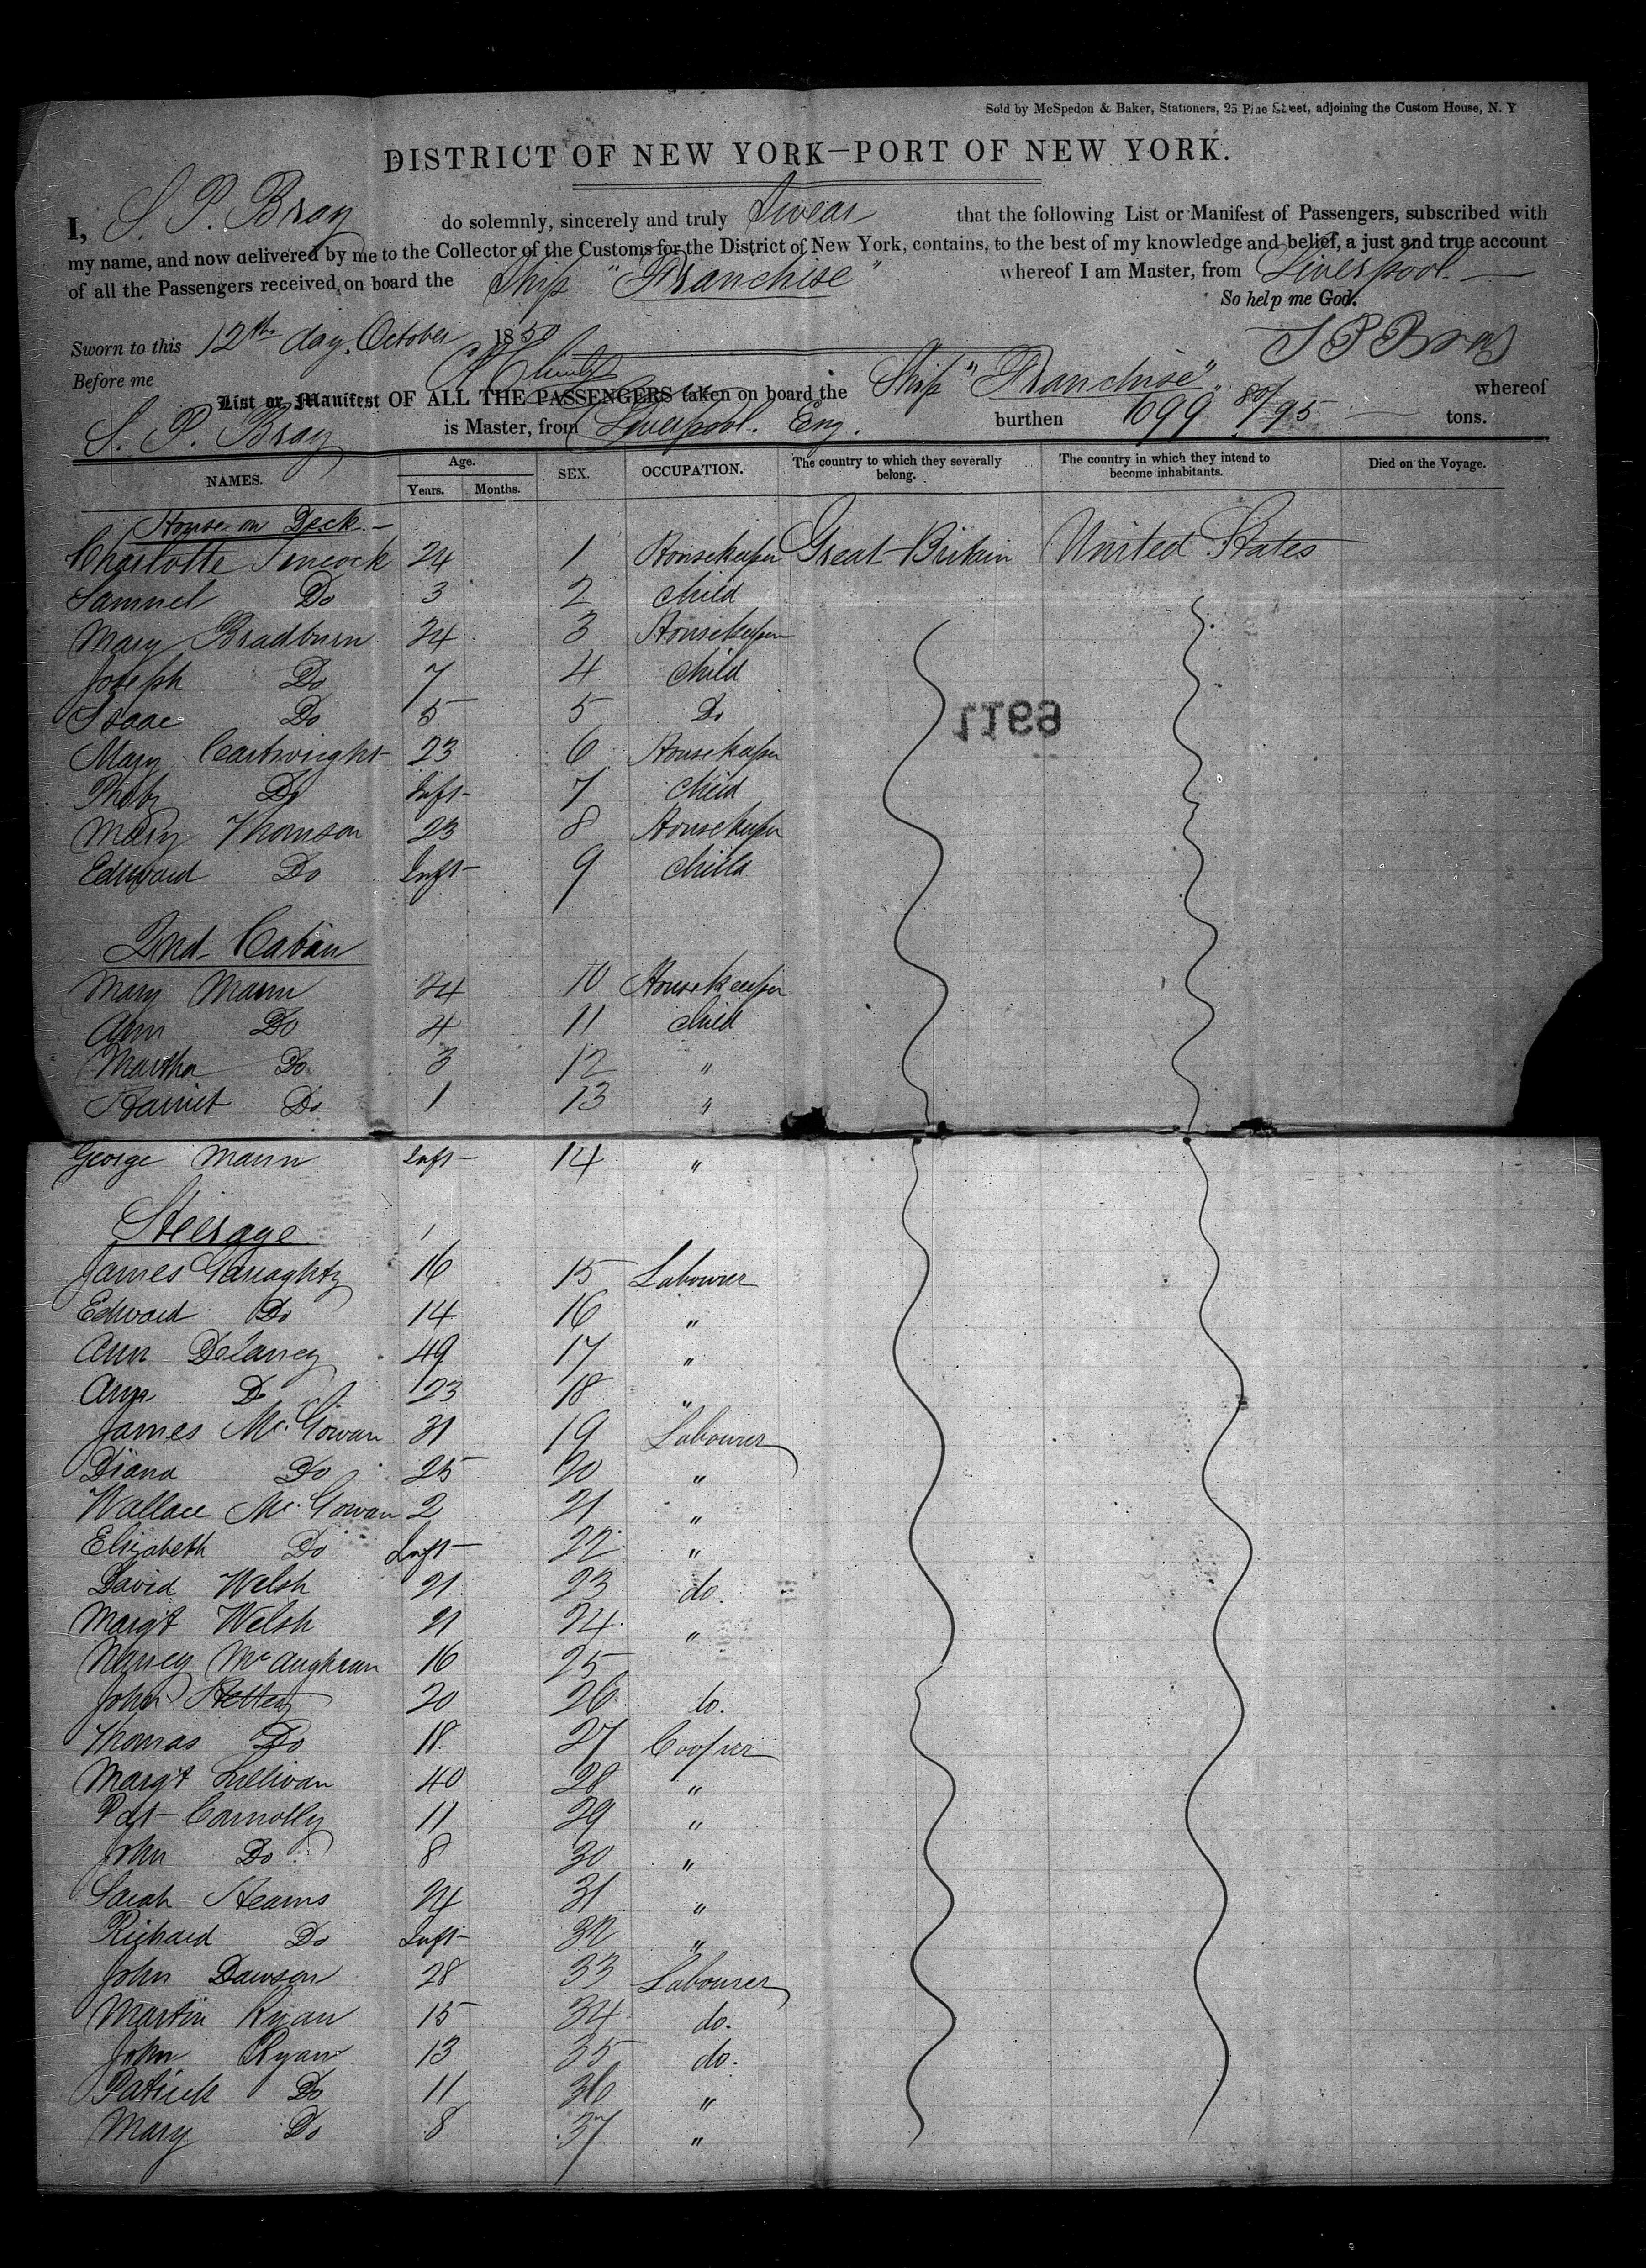 Sold by McSpedon & Baker, Stationers, 25 Pine Street, adjoining the Custom House, N. Y
DISTRICT OF NEW YORK—PORT OF NEW YORK.
I, S. P. Bray do solemnly, sincerely and truly Swear that the following List or Manifest of Passengers, subscribed with
my name, and now delivered by me to the Collector of the Customs for the District of New York, contains, to the best of my knowledge and belief, a just and true account
of all the Passengers received on board the Ship "Franchise" whereof I am Master, from Liverpool
So help me God.
Sworn to this 12th day October 1850
S P Bray
Before me
List or Manifest OF ALL THE PASSENGERS taken on board the Ship "Franchise" whereof
S. P. Bray is Master, from Liverpool. Eng. burthen 699 80/95 tons.
NAMES. Age. Years. Months. SEX. OCCUPATION. The country to which they severally belong. The country in which they intend to become inhabitants. Died on the Voyage.
House on Deck.
Charlotte 24 1 Housekeeper Great Britain United States
Samuel Do 3 2 child
Mary Bradburn 24 3 Housekeeper
Joseph Do 7 4 child
Isaac Do 5 5 Do
1169
Mary Cartwright 23 6 Housekeeper
Pheby Do Inft 7 child
Mary Thomson 23 8 Housekeeper
Edward Do Inft 9 child
2nd Cabin
Mary Mann 24 10 Housekeeper
Ann Do 4 11 child
Martha Do 3 12 "
Harriet Do 1 13 "
George Mann Inft 14 "
Steerage
James 16 15 Labourer
Edward Do 14 16 "
Ann Delaney 49 17 "
Ann Do 23 18 "
James McGowan 31 19 Labourer
Diana Do 25 20 "
Wallace McGowan 2 21 "
Elizabeth Do Inft 22 "
David Welsh 21 23 do.
Margt Welsh 21 24 "
Nancy 16 25
John 20 26 do.
Thomas Do 18 27 Cooper
Margt Sullivan 40 28 "
Pat Connolly 11 29 "
John Do 8 30 "
Sarah Hearns 24 31 "
Richard Do Inft 32 "
John Dawson 28 33 Labourer
Martin Ryan 15 34 do.
John Ryan 13 35 do.
Patrick Do 11 36 "
Mary Do 8 37 "